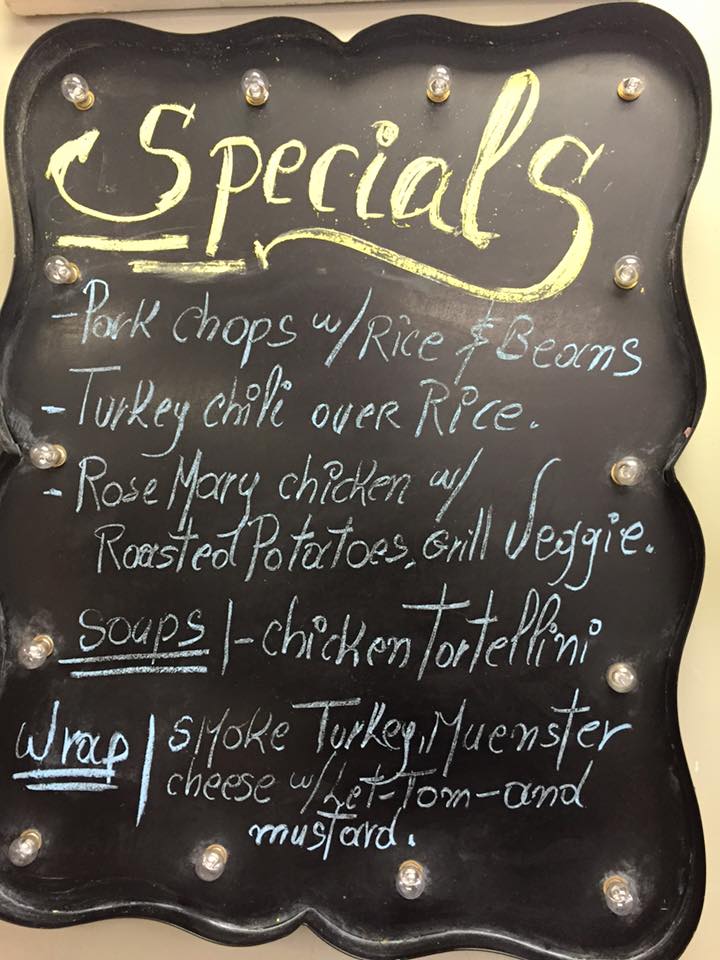 Specials
- Pork Chops w/ Rice & Beans
- Turkey chili over Rice.
- Rose Mary chicken w/
Roasted Potatoes, Grill Veggie.
Soups | - chicken Tortellini
Wrap | Smoke Turkey, Muenster
cheese w/ Let-Tom-and
mustard.